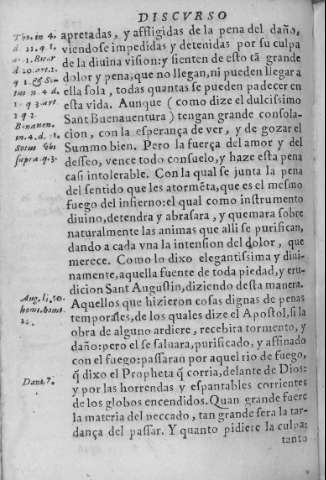 DISCVRSO
apretadas, y affligidas de la pena del daño,
viendose impedidas y detenidas por su culpa
de la diuina vision: y sienten de esto tā grande
dolor y pena, que no llegan, ni pueden llegar a
ella sola, todas quantas se pueden padecer en
esta vida. Aunque (como dize el dulcissimo
Sant Buenauentura) tengan grande consola-
cion, con la esperança de ver, y de gozar el
Summo bien. Pero la fuerça del amor y del
desseo, vence todo consuelo, y haze esta pena
casi intolerable. Con la qual se junta la pena
del sentido que les atormēta, que es el mesmo
fuego del infierno: el qual como instrumento
diuino, detendra y abrasara, y quemara sobre
naturalmente las animas que alli se purifican,
dando a cada vna la intension del dolor, que
merece. Como lo dixo elegantissima y diui-
namente, aquella fuente de toda piedad, y eru-
dicion Sant Augustin, diziendo desta manera.
Aquellos que hizieron cosas dignas de penas
temporales, de los quales dize el Apostol, si la
obra de alguno ardiere, recebira tormento, y
daño: pero el se saluara, purificado, y affinado
con el fuego: passaran por aquel rio de fuego,
q̄ dixo el Propheta q̄ corria, delante de Dios:
y por las horrendas y espantables corrientes
de los globos encendidos. Quan grande fuere
la materia del peccado, tan grande sera la tar-
dança del passar. Y quanto pidiere la culpa:
tanto
Tho. in 4.
d. 21. q. 1.
Bonauen.
in. 4. d.
supra q. 3.
Aug. li. 50.
homi. homi.
Dani. 7.